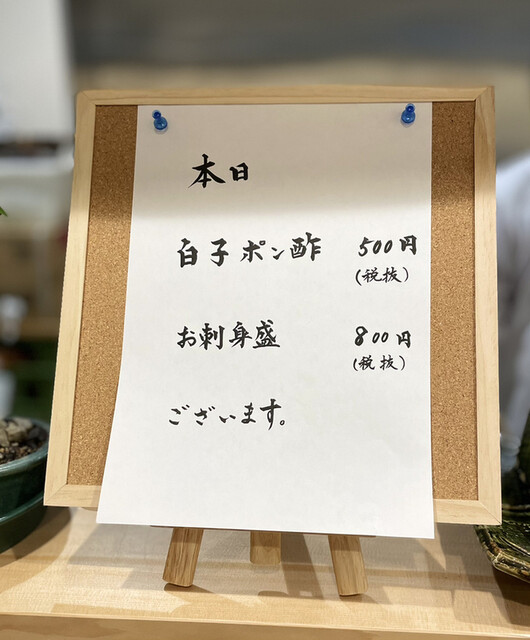 本日
白子ポン酢 500円
(税抜)
お刺身盛 800円
(税抜)
ございます。